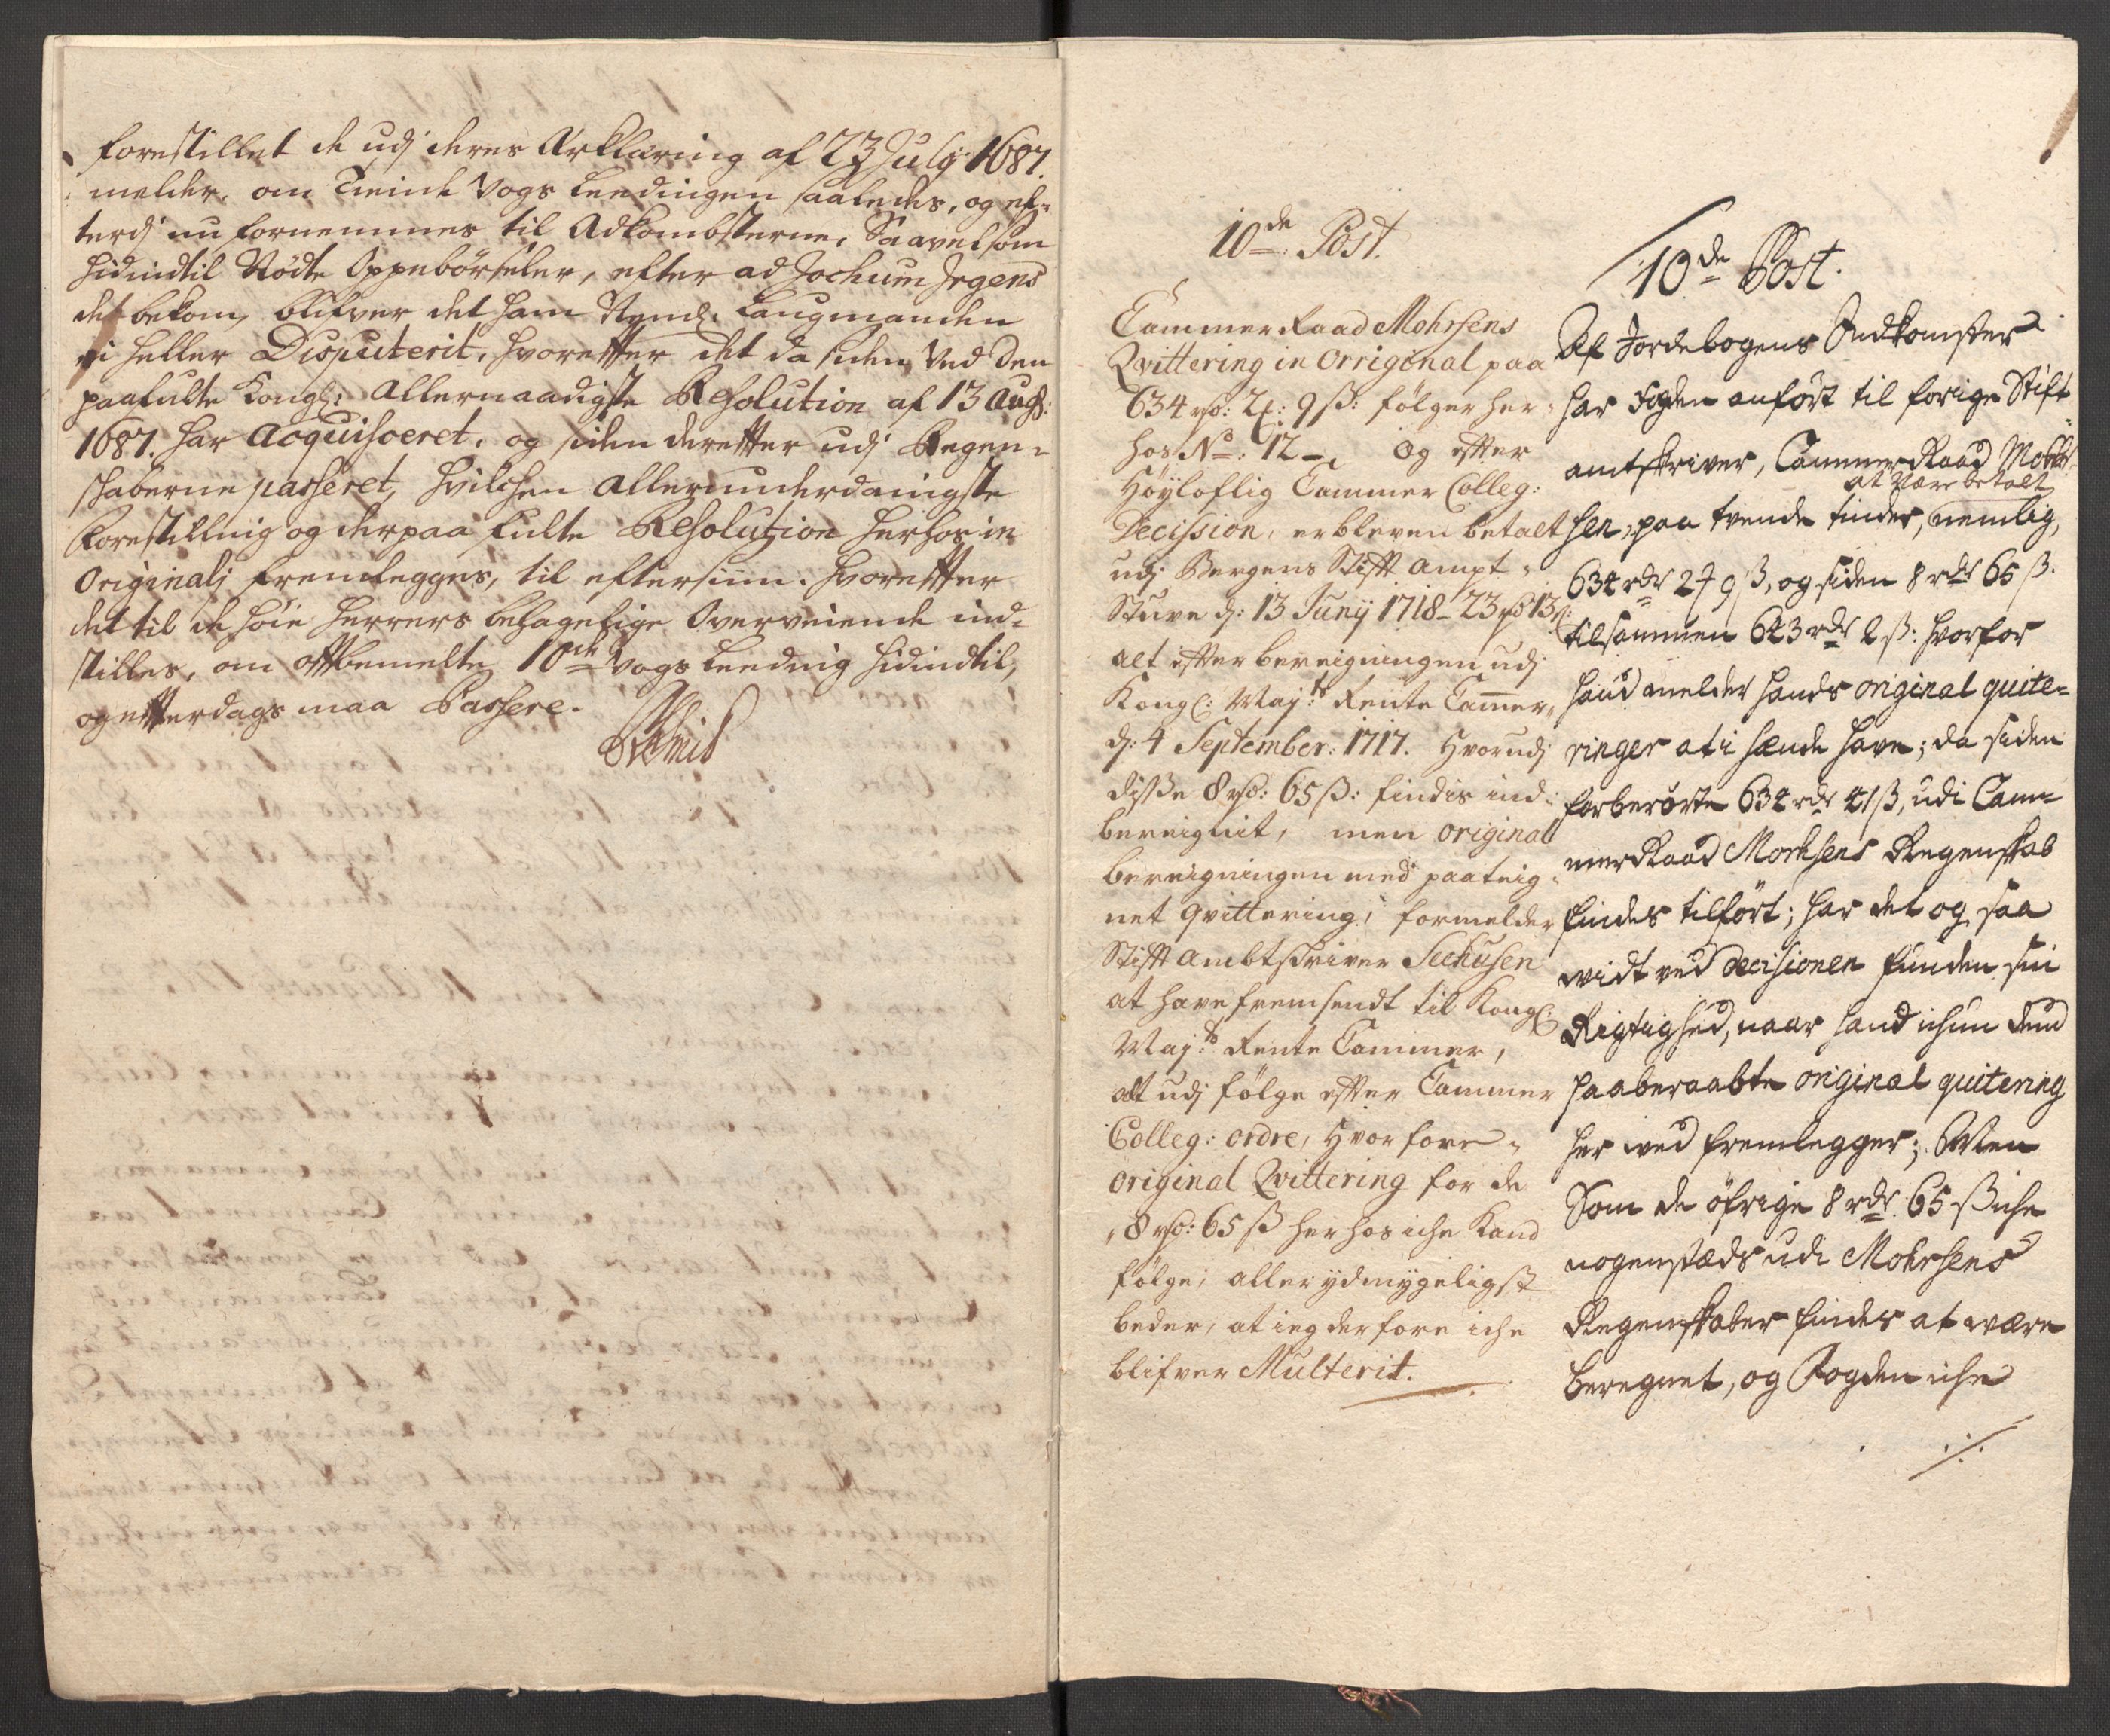 forestillet de udj deres Erklæring af 23 Julij 1687.
melder, om Tiende Vogs Leedingen saaledes, og ef-
terdj nu fornemmes til Adkomsterne, Saavelsom
hidindtil Nödte Oppebörseler, efter ad Jochum Jrgens
det bekom, blifver det ham Nembl. Laugmanden
ei heller Disputerit, hvorefter det da siden Ved Den
paafulte Kongl: Allernaadigste Resolution af 13 Augs:
1687. har Acquisceret, og siden derefter udj Regen-
schaberne passeret, hvilchen allerunderdanigste
Forestilling og derpaa fulte Resolution herhos in
Originalj fremlegges, til eftersiun. hvorefter
det til de höie Herrers behagelige Overveiende ind-
stilles, om offtbemelte 10de Vogs Leedning hidindtil,
og efterdags maa Passere.
10de Post.
Cammer Raad Mohrsens
Qvittering in Original paa
634 rd: 2 : 9 ß: fölger her-
hos No: 12 -, Og efter
Höyloflig Cammer Colleg:
Decission, er bleven betalt
udj Bergens Stift Ampt-
Stuve d: 13 Junij 1718 - 23 rd 13 ß:
alt efter bereigningen udj
Kongl: Maj:ts Rente Camer,
d: 4 September: 1717. Hvorudj
disse 8 rd: 65 ß: findis ind-
bereignit, men original
bereigningen med paateig-
net qvittering, formelder
Stift Ambtskriver Seehusen
at have fremsendt til Kongl:
Maj:ts Rente Cammer,
alt udj fölge efter Cammer
Colleg: ordre, Hvorfore-
original Qvittering for de
8 rd: 65 ß her hos iche Kand
fölge, aller ydmygeligst
beder, at ieg derfore iche
blifver Multerit.
10de Post.
Af Jordebogens Indkomster
har Fogden anfört til forige Stift-
amtskriver, Cammer Raad Mohr-
at være betalt
sen, paa tvende tiider, nemlig,
634 rdr 2  9 ß, og siden 8 rdr 65 ß.
tilsammen 643 rdr 2 ß: hvorfor
hand melder hands original quite-
ringer at i hænde have; da siden
forberörte 634 rdr 41 ß, udi Cam-
merRaad Morhsens Regenskab
findes tilfört; har det og saa
widt ved decisionen funden sin
Rigtighed, naar hand ichun dend
paaberaabte original quitering
her wed fremlegger; Men
Som de öfrige 8 rdr 65 ß iche
nogenstæds udi Mohrsens
Regenskaber findes at være
beregnet, og Fogden iche
./.